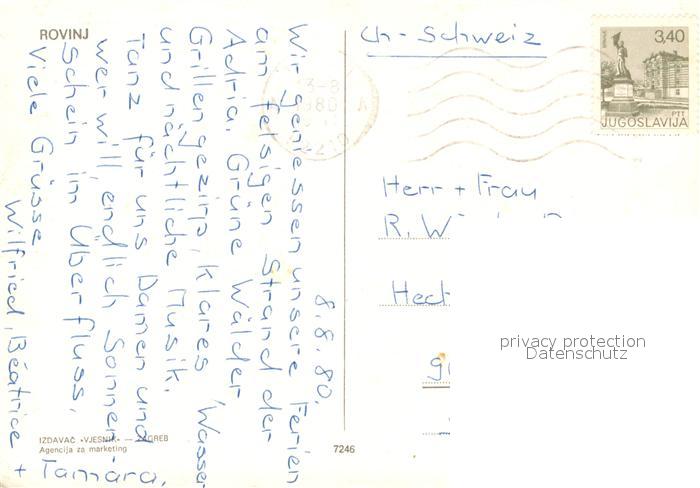 ROVINJ
8.8.80.
Wir geniessen unsere Ferien
am felsigen Strand der
Adria. Grüne Wälder
Grillengezirp, klares Wasser
und nächtliche Musik.
Tanz für uns Damen und
wer will, endlich Sonnen-
schein im Überfluss.
Viele Grüsse
Wilfried, Béatrice
+ Tamara.
IZDAVAČ »VJESNIK« — ZAGREB
Agencija za marketing
7246
CH - Schweiz
3,40
PTT
JUGOSLAVIJA
1980
Herr + Frau
R. W
privacy protection
Datenschutz